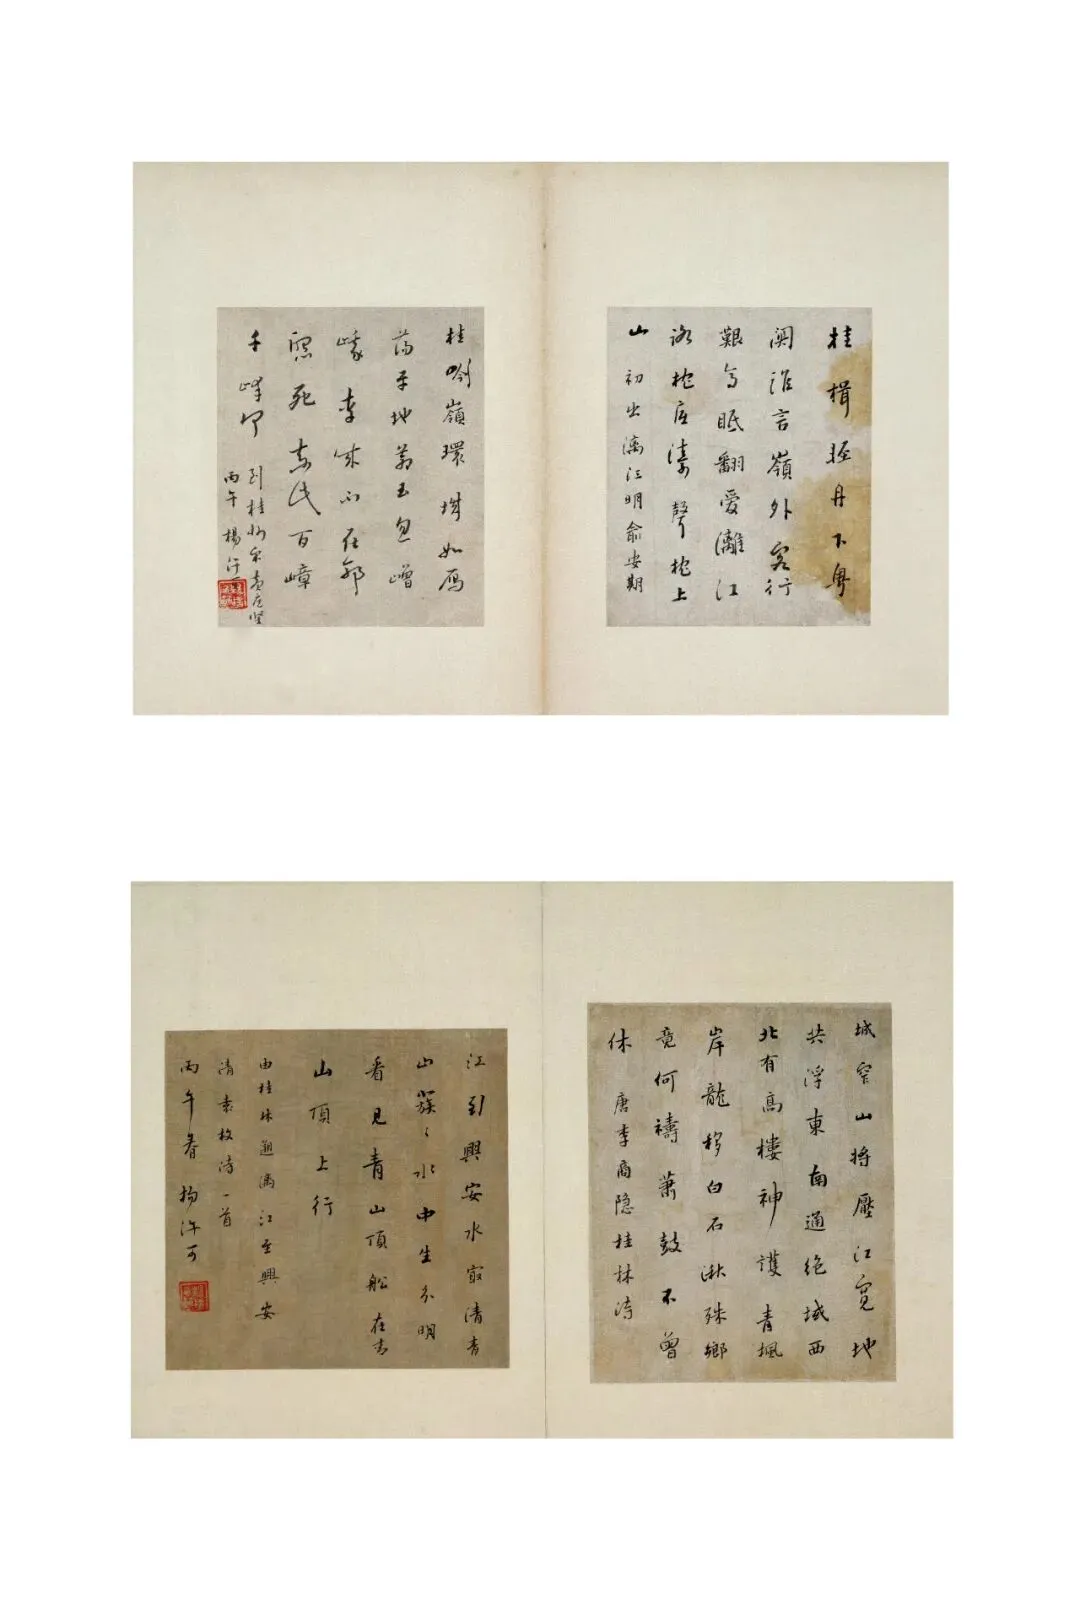 桂楫輕舟下粵
関誰言嶺外客行
艱高眠翻愛灕江
路枕底濤聲枕上
山 初出漓江明俞安期
桂嶺環城如雁
蕩平地蒼玉忽嶒
峨李成不在郭
熙死奈此百嶂
千峰何 到桂州宋黃庭堅
丙午楊
城窄山將壓江寬地
共浮東南通絕域西
北有高樓神護青楓
岸龍移白石湫殊鄉
竟何禱蕭鼓不曾
休 唐李商隐桂林诗
江到興安水最清青
山簇〻水中生分明
看見青山頂船在青
山頂上行
由桂林遡漓江至興安
清袁枚诗一首
丙午春楊许可